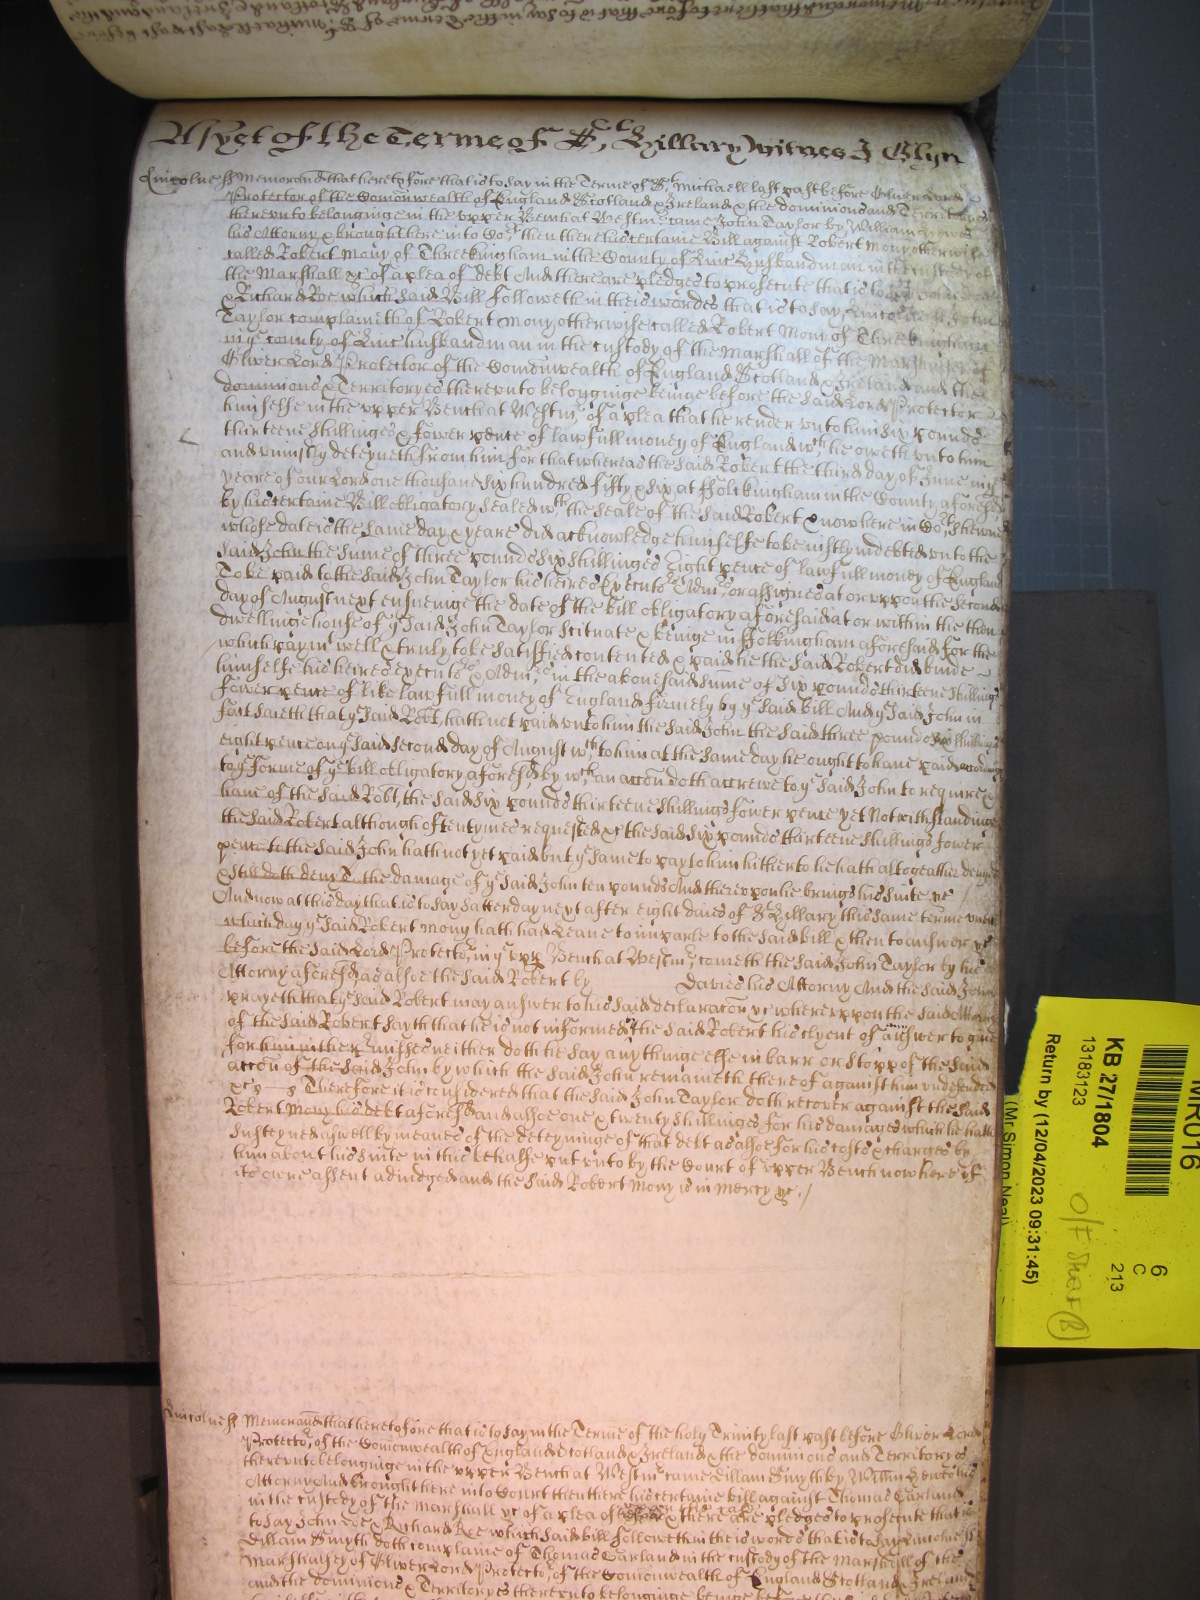 As yet of the Terme of St Hillary Witnes J Glyn
Lincolne ss Memorand that heretofore that is to say in the Terme of St Michaell last past before Oliver Lord
Protector of the Comonwealth of England Scotland & Ireland & the dominions and Territoryes
thereunto belonging in the upper Bench at Westmr came John Taylor by William
his Attorny & brought here into Cort then there his certaine Bill against Robert Mony otherwise
called Robert Mony of Threekingham in the County of Linc Husbandman in the custody of
the Marshall &c of a plea of debt And there are pledges to prosecute that is to say John Doe
& Richard Roe which said Bill followeth in theis wordes that is to say Lincolne ss John
Taylor complaineth of Robert Mony otherwise called Robert Mony of Threekingham
in ye county of Linc husbandman in the custody of the Marshall of the Marshalsey of
Oliver Lord Protector of the Comonwealth of England Scotland & Ireland and the
dominions & Territoryes thereunto belonginge beinge before the said Lord Protector
himselfe in the upper Bench at Westmr of a plea that he render unto him six pounds
thirteene shillinges & fower pence of lawfull money of England wch he oweth unto him
and uniustly deteyneth from him for that whereas the said Robert the third day of June in ye
yeare of our Lord one thousand six hundred fifty & six at ffolkingham in the County aforesd
by his certaine Bill obligatory sealed wth the seale of the said Robert & now here in Cort shewne
whose date is the same day & yeare did acknowledge himselfe to be iustly indebted unto the
said John the sume of three pounds six shillinges Eight pence of lawfull money of England
To be paid to the said John Taylor his heires Executrs Admrs or assignes at or uppon the second
day of August next ensueinge the date of the bill obligatory aforesaid at or within the then
dwellinge house of ye said John Taylor scituate & beinge in ffolkingham aforesaid for the
which paymt well & truly to be satisfied contented & paid he the said Robert did binde
himselfe his heires executrs & Admrs in the abovesaid sume of six pounds thirteene shillings
fower pence of like lawfull money of England firmely by ye said bill And ye said John in
fact saieth that ye said Robt hath not paid unto him the said John the said three pounds six shillings
eight pence on ye said second day of August wch to him at the same day he ought to have paid according
to ye forme of ye bill obligatory aforesd by wch an accon doth accrewe to ye said John to require &
have of the said Robt the said six pounds thirteene shillings fower pence yet Notwithstandinge
the said Robert although oftentymes requested &c the said six pounds thirteene shillings fower
pence to the said John hath not yet paid but ye same to pay to him hitherto he hath altogeather denyed
& still doth deny To the damage of ye said John ten pounds And thereuppon he brings his suite &c
And now at this day that is to say Satterday next after eight daies of St Hillary this same terme untill
which day ye said Robert Mony hath had leave to imparle to the said bill & then to answer &c
before the said Lord Protector in ye uppr Bench at Westmr cometh the said John Taylor by his
Attorny aforesd as alsoe the said Robert by Davies his Attorny And the said John
prayeth that ye said Robert may answer to his said declaracon &c whereuppon the said Attorny
of the said Robert sayth that he is not informed by the said Robert his clyent of answer to give
for him in the prmisses neither doth he say any thinge else in barr or stopp of the said
accon of the said John by which the said John remaineth thereof against him undefended
&c Therefore it is considered that the said John Taylor doth recover against the said
Robert Mony his debt aforesd and alsoe one & twenty shillinges for his damages which he hath
susteyned aswell by meanes of the deteyninge of that debt as alsoe for his costs & charges by
him about his suite in this behalfe put unto by the Court of upper Bench now here of
its owne assent adiudged and the said Robert Mony is in Mercy &c
Lincolne ss Memorand that heretofore that is to say in the Terme of the holy Trinity last past before Oliver Lord
Protector of the Comonwealth of England Scotland & Ireland & the dominions and Territoryes
thereunto belonginge in the upper Bench at Westmr came Smyth by Willm his
Attorny And brought here into Court then there his certaine bill against Thomas Garland
in the custody of the Marshall &c of a plea of & there are pledges to prosecute that is
to say John Doe & Richard Roe which said bill followeth in theis words that is to say Lincolne ss
Smyth doth complaine of Thomas Garland in the custody of the Marshall of the
Marshalsey of Oliver Lord Protector of the Comonwealth of England Scotland & Ireland
and the dominions & Territoryes thereunto belonginge beinge
MR016
6
C
213
KB 27/1804
13183123
Return by (12/04/2023 09:31:45)
(Mr Simon Neal)